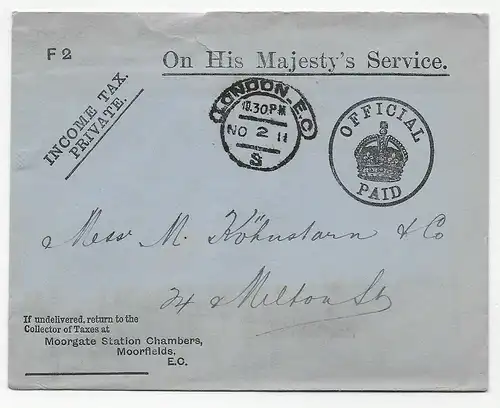 F 2
On His Majesty's Service.
INCOME TAX.
PRIVATE.
LONDON. E.C
10.30PM
NO 2 11
S
OFFICIAL
PAID
Mess M. Köhnstarn & Co
24 Milton St
If undelivered, return to the
Collector of Taxes at
Moorgate Station Chambers,
Moorfields,
E.C.